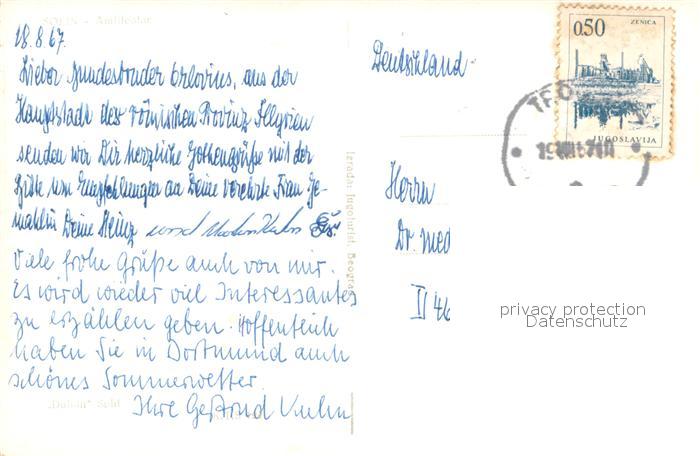 SOLIN - Amfiteatar
18.8.67.
Lieber Bundesbruder Orlovius, aus der
Hauptstadt der römischen Provinz Illyrien
senden wir Dir herzliche Gothengrüße mit der
Bitte um Empfehlungen an Deine verehrte Frau Ge-
mahlin Deine Heinz und
Viele frohe Grüße auch von mir.
Es wird wieder viel Interessantes
zu erzählen geben. Hoffentlich
haben Sie in Dortmund auch
schönes Sommerwetter.
Ihre Gertrud Kuhn
"Dalcin" Split
Izrada: Jugoturist, Beograd
Deutschland
Herrn
Dr med
II 46
0.50
ZENICA
JUGOSLAVIJA
privacy protection
Datenschutz